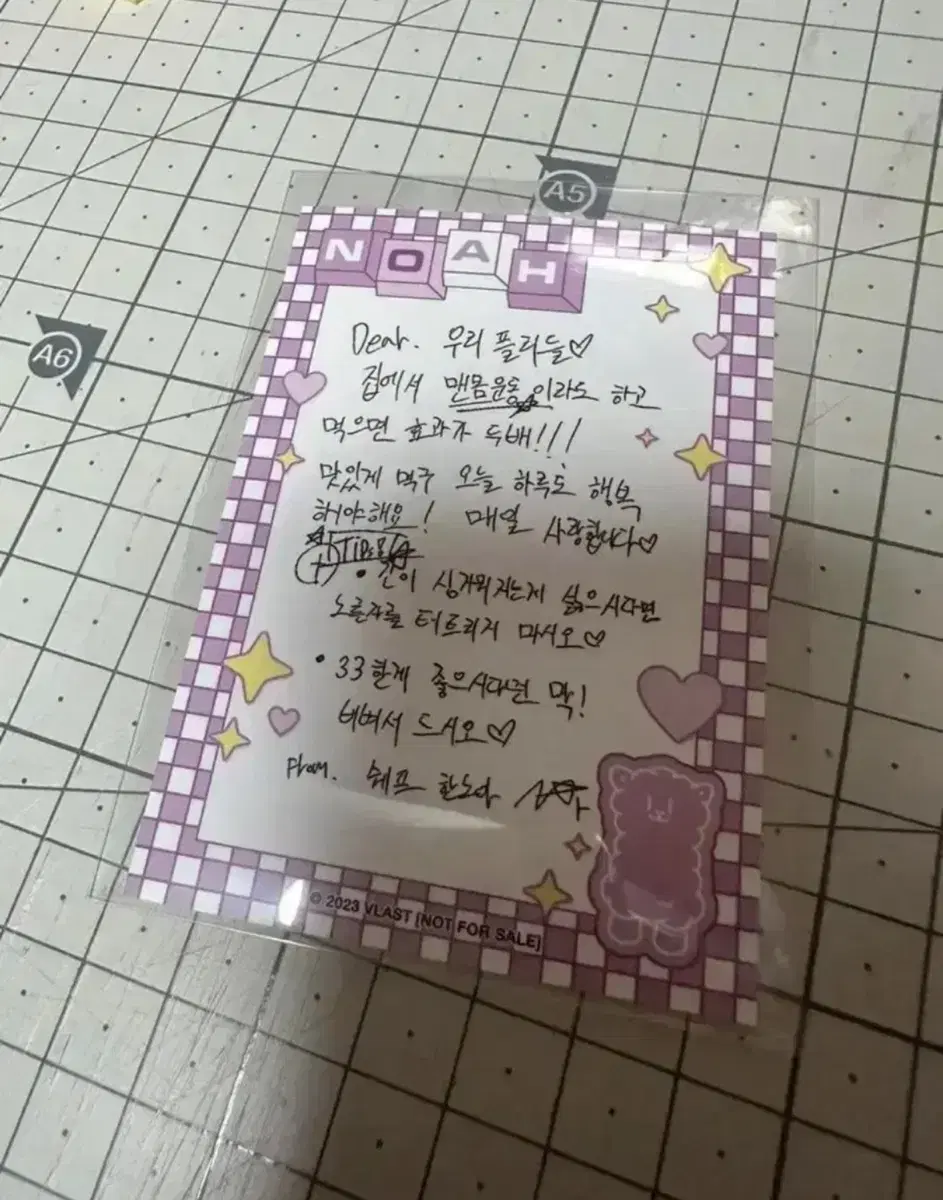 A5
A6
NOAH
Dear. 우리 플리들♡
집에서 맨몸운동이라도 하고
먹으면 효과가 두배!!!
맛있게 먹구 오늘 하루도 행복
해야해요! 매일 사랑합니다♡
+ TIP
• 간이 싱거워지는게 싫으시다면
노른자를 터트리지 마시오♡
• 33한게 좋으시다면 막!
비벼서 드시오♡
From. 쉐프 한노아
© 2023 VLAST [NOT FOR SALE]